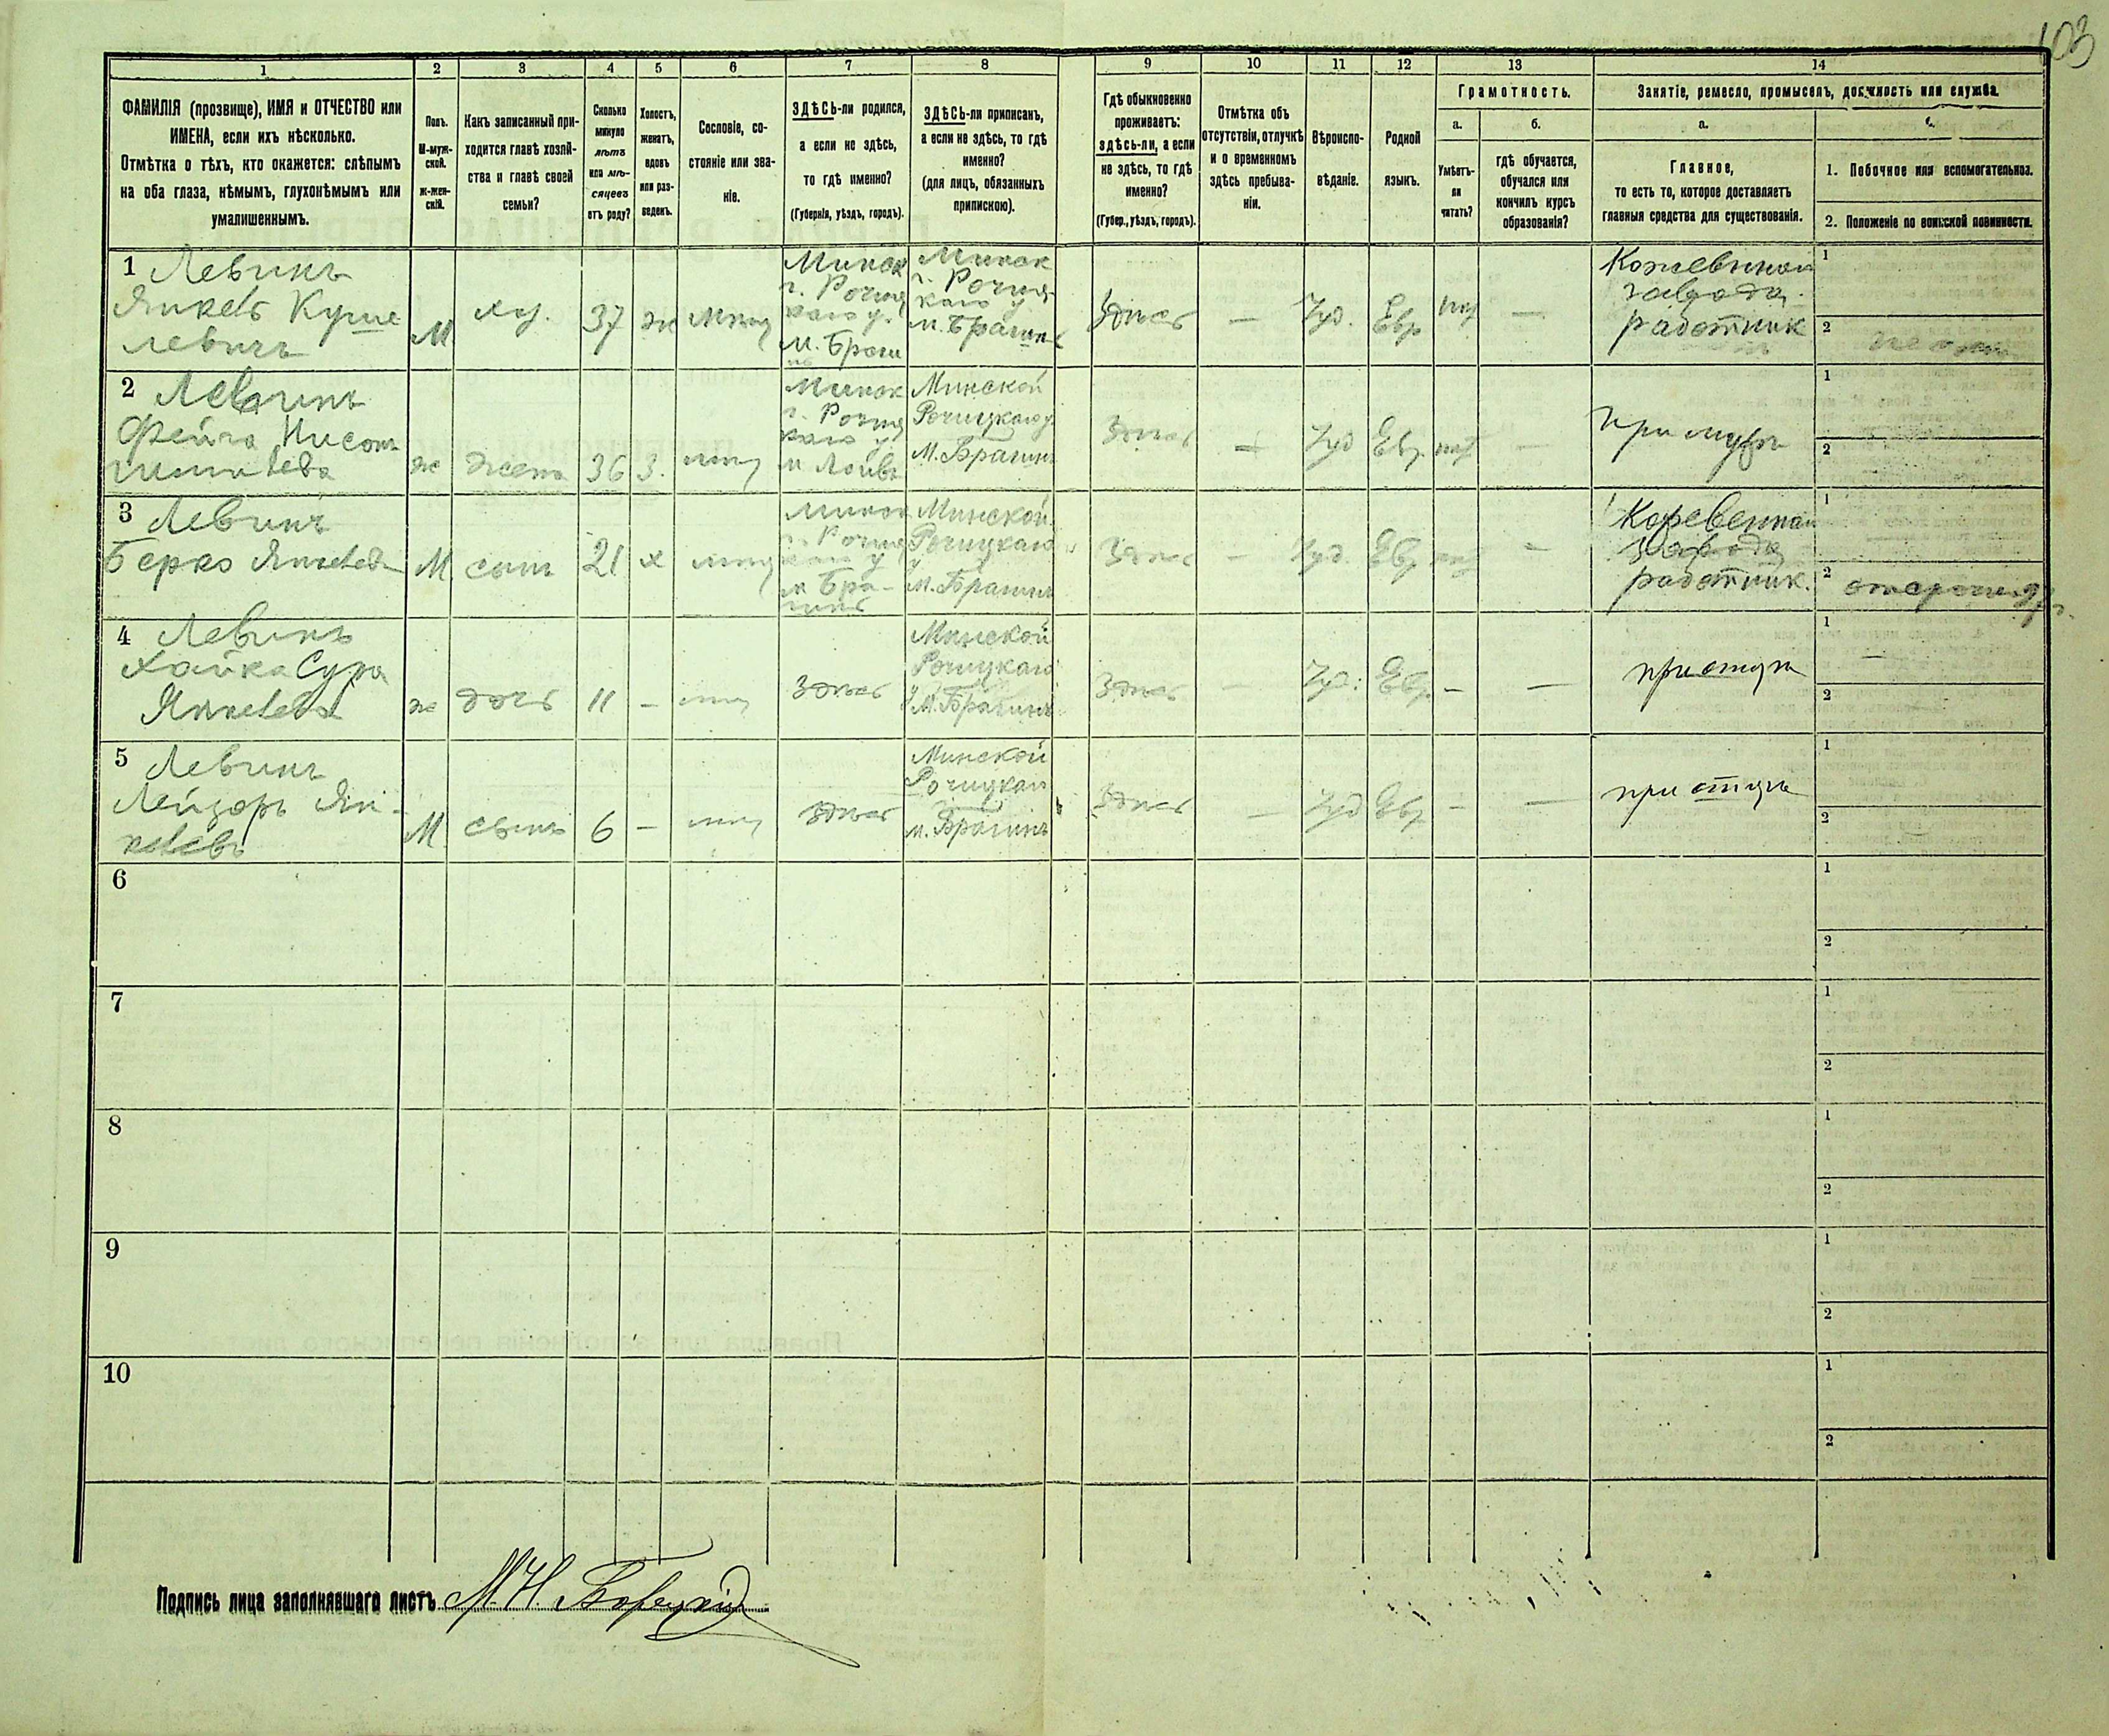 103
1 2 3 4 5 6 7 8 9 10 11 12 13 14
ФАМИЛІЯ (прозвище), ИМЯ и ОТЧЕСТВО или
ИМЕНА, если ихъ нѣсколько.
Отмѣтка о тѣхъ, кто окажется: слѣпымъ
на оба глаза, нѣмымъ, глухонѣмымъ или
умалишеннымъ.
Полъ.
М-муж-
ской.
ж-жен-
скій.
Какъ записанный при-
ходится главѣ хозяй-
ства и главѣ своей
семьи?
Сколько
минуло
лѣтъ
или мѣ-
сяцевъ
отъ роду?
Холостъ,
женатъ,
вдовъ
или раз-
веденъ.
Сословіе, со-
стояніе или зва-
ніе.
ЗДѢСЬ-ли родился,
а если не здѣсь,
то гдѣ именно?
(Губернія, уѣздъ, городъ).
ЗДѢСЬ-ли приписанъ,
а если не здѣсь, то гдѣ
именно?
(для лицъ, обязанныхъ
припискою).
Гдѣ обыкновенно
проживаетъ:
здѣсь-ли, а если
не здѣсь, то гдѣ
именно?
(Губер., уѣздъ, городъ).
Отмѣтка объ
отсутствіи, отлучкѣ
и о временномъ
здѣсь пребыва-
ніи.
Вѣроиспо-
вѣданіе.
Родной
языкъ.
Грамотность.
а.
Умѣетъ-
ли
читать?
б.
гдѣ обучается,
обучался или
кончилъ курсъ
образованія?
Занятіе, ремесло, промыселъ, должность или служба.
а.
Главное,
то есть то, которое доставляетъ
главныя средства для существованія.
1. Побочное или вспомогательное.
2. Положеніе по воинской повинности.
1 Левинъ
Янкель
левичъ
М
хоз.
37
ж
Минск
г. Речиц
каго у.
м. Браги
нѣ
Минск
г. Речиц
каго у
м. Брагинѣ
Здѣсь
—
Іуд.
Евр
—
Кожевеннаго
завода
работник
1
2
2 Левинъ
ж
жена
36
З.
Минск
г. Речиц
каго у
м Лоевѣ
Минской
Речицкаго у
м. Брагинѣ
Здѣсь
—
Іуд
Евр.
—
при мужѣ
1
2
3 Левинъ
Берко
М.
сынъ
21
х
Минск
г. Речиц
каго у
м Бра-
гинѣ
Минской
Речицкаго
у
м. Брагинѣ
Здѣсь
—
Іуд.
Евр
—
Кожевеннаго
завода
работник.
1
2
4 Левинъ
Хайка Сура
Янкелева
ж
дочь
11
—
здѣсь
Минской
Речицкаго
у м. Брагинѣ
Здѣсь
—
Іуд.
Евр.
—
—
при отцѣ
1 —
2
5 Левинъ
Лейзоръ Ян-
келевъ
М
сынъ
6
—
здѣсь
Минской
Речицкаго
м. Брагинѣ
Здѣсь
—
Іуд
Евр
—
—
при отцѣ
1
2
6
1
2
7
1
2
8
1
2
9
1
2
10
1
2
Подпись лица заполнявшаго листъ М. Н.